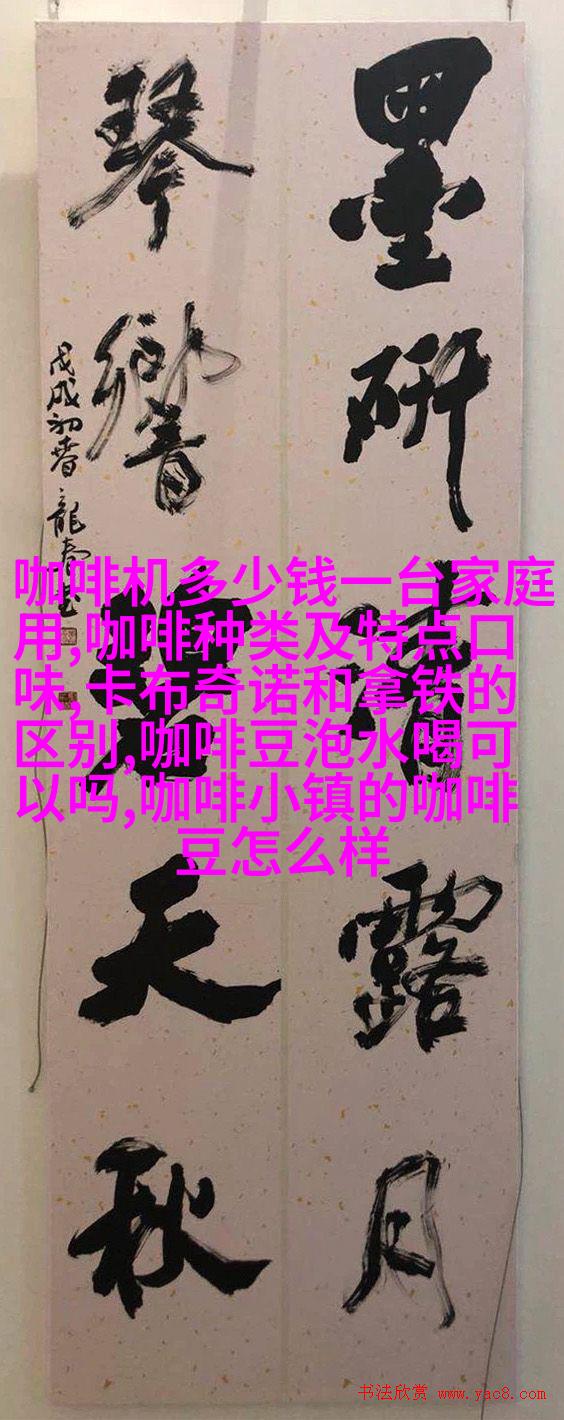 墨研清露月
琴響碧天秋
戊戌初春
龍
咖啡机多少钱一台家庭
用,咖啡种类及特点口
味,卡布奇诺和拿铁的
区别,咖啡豆泡水喝可
以吗,咖啡小镇的咖啡
豆怎么样
书法欣赏 www.yac8.com